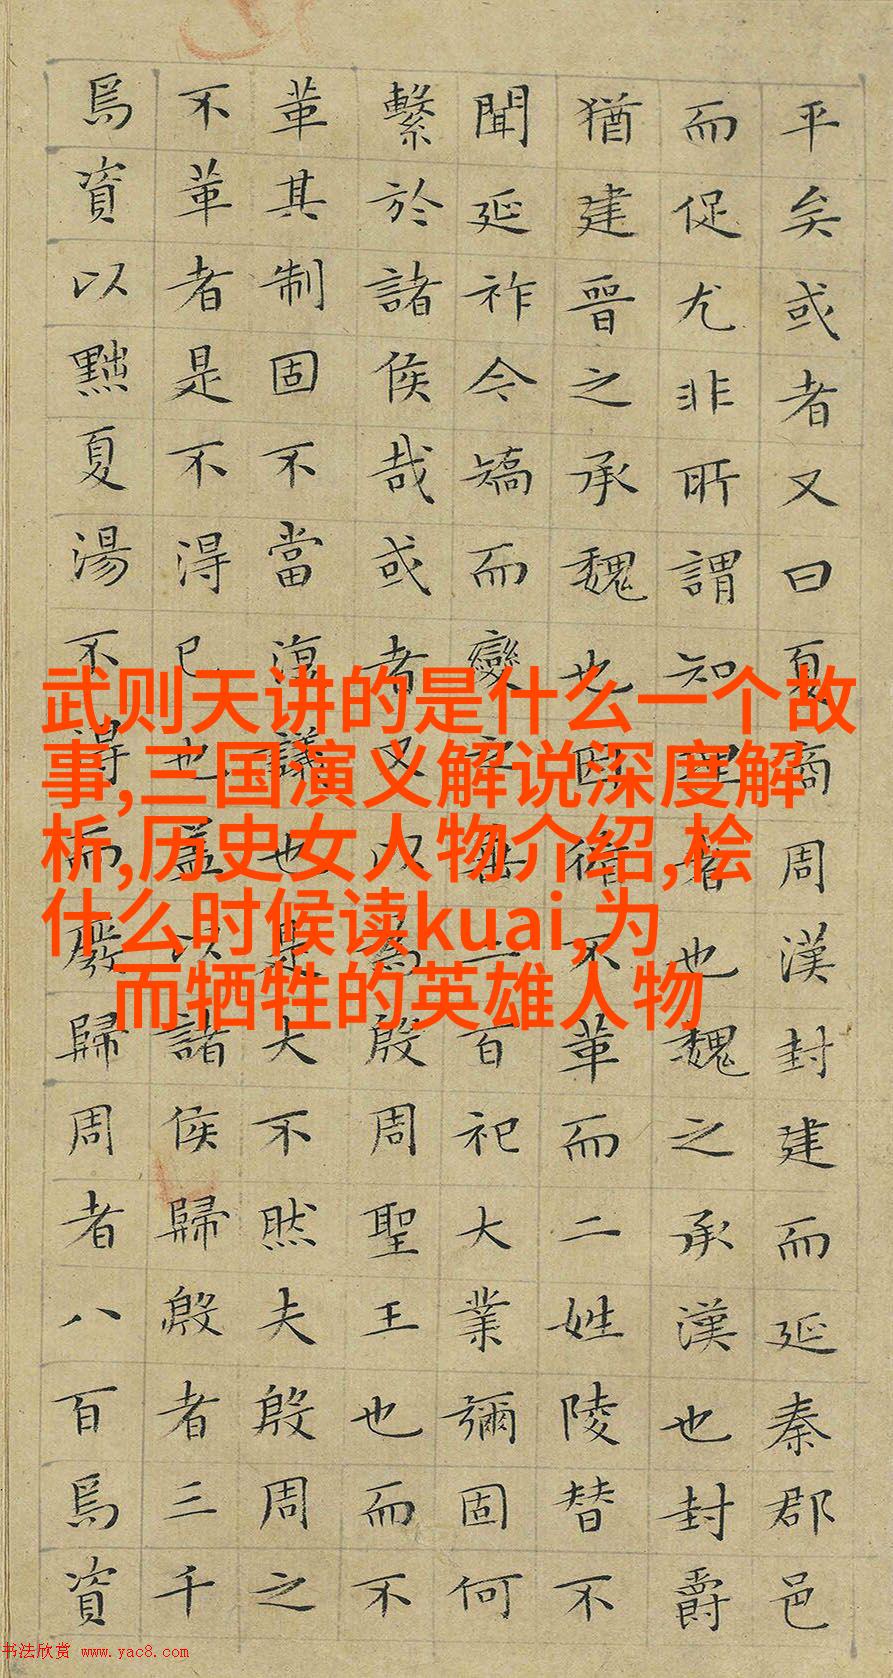 平矣或者又曰夏商周漢封建而延秦郡邑
而促尤非所謂知理者也魏之承漢也封爵
猶建晉之承魏也因循不革而二姓陵替不
聞延祚今矯而變之垂二百祀大業彌固何
繫於諸侯哉或者又以為殷周聖王也而不
革其制固不當復議也是大不然夫殷周之
不革者是不得已也蓋以諸侯歸殷者三千
焉資以黜夏湯不得而廢歸周者八百焉資
武则天讲的是什么一个故
事,三国演义解说深度解
析,历史女人物介绍,桧
什么时候读kuai,为
而牺牲的英雄人物
书法欣赏 www.yac8.com